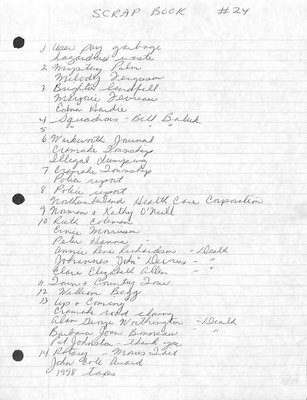 SCRAP BOOK #24
1 User pay garbage
hazardous waste
2 Mystery Palm
Melody Ferguson
3 Brighton Landfill
Marjorie
Edna
4 Squadrons - Bill
5 " " "
6 Warkworth Journal
Cramahe Township
Illegal dumping
7 Cramahe Township
Police report
8 Police report
Northumberland Health Care Corporation
9 Norman & Kathy O'Neill
10 Ruth Coleman
Ernie Morrison
Peter Hanna
Annie Rene Richardson - Death
Johannes "John" Devries - "
Clara Elizabeth Allen - "
11 Town & Country Tour
12 William Begg
13 Up & Coming
Cramahe road
Alan George Worthington - Death
Barbara Joan "
Pat Johnston - thank you
14 Rotary -
John Cole Award
1998 taxes